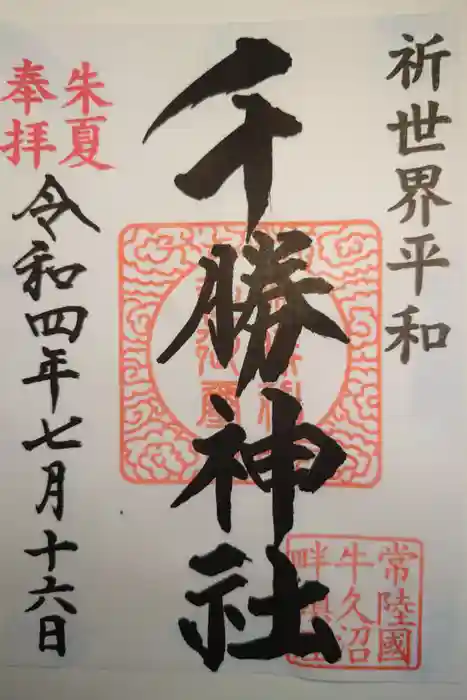 祈世界平和
千勝神社
朱夏
奉拝
令和四年七月十六日
常陸國
牛久沼
畔鎮座